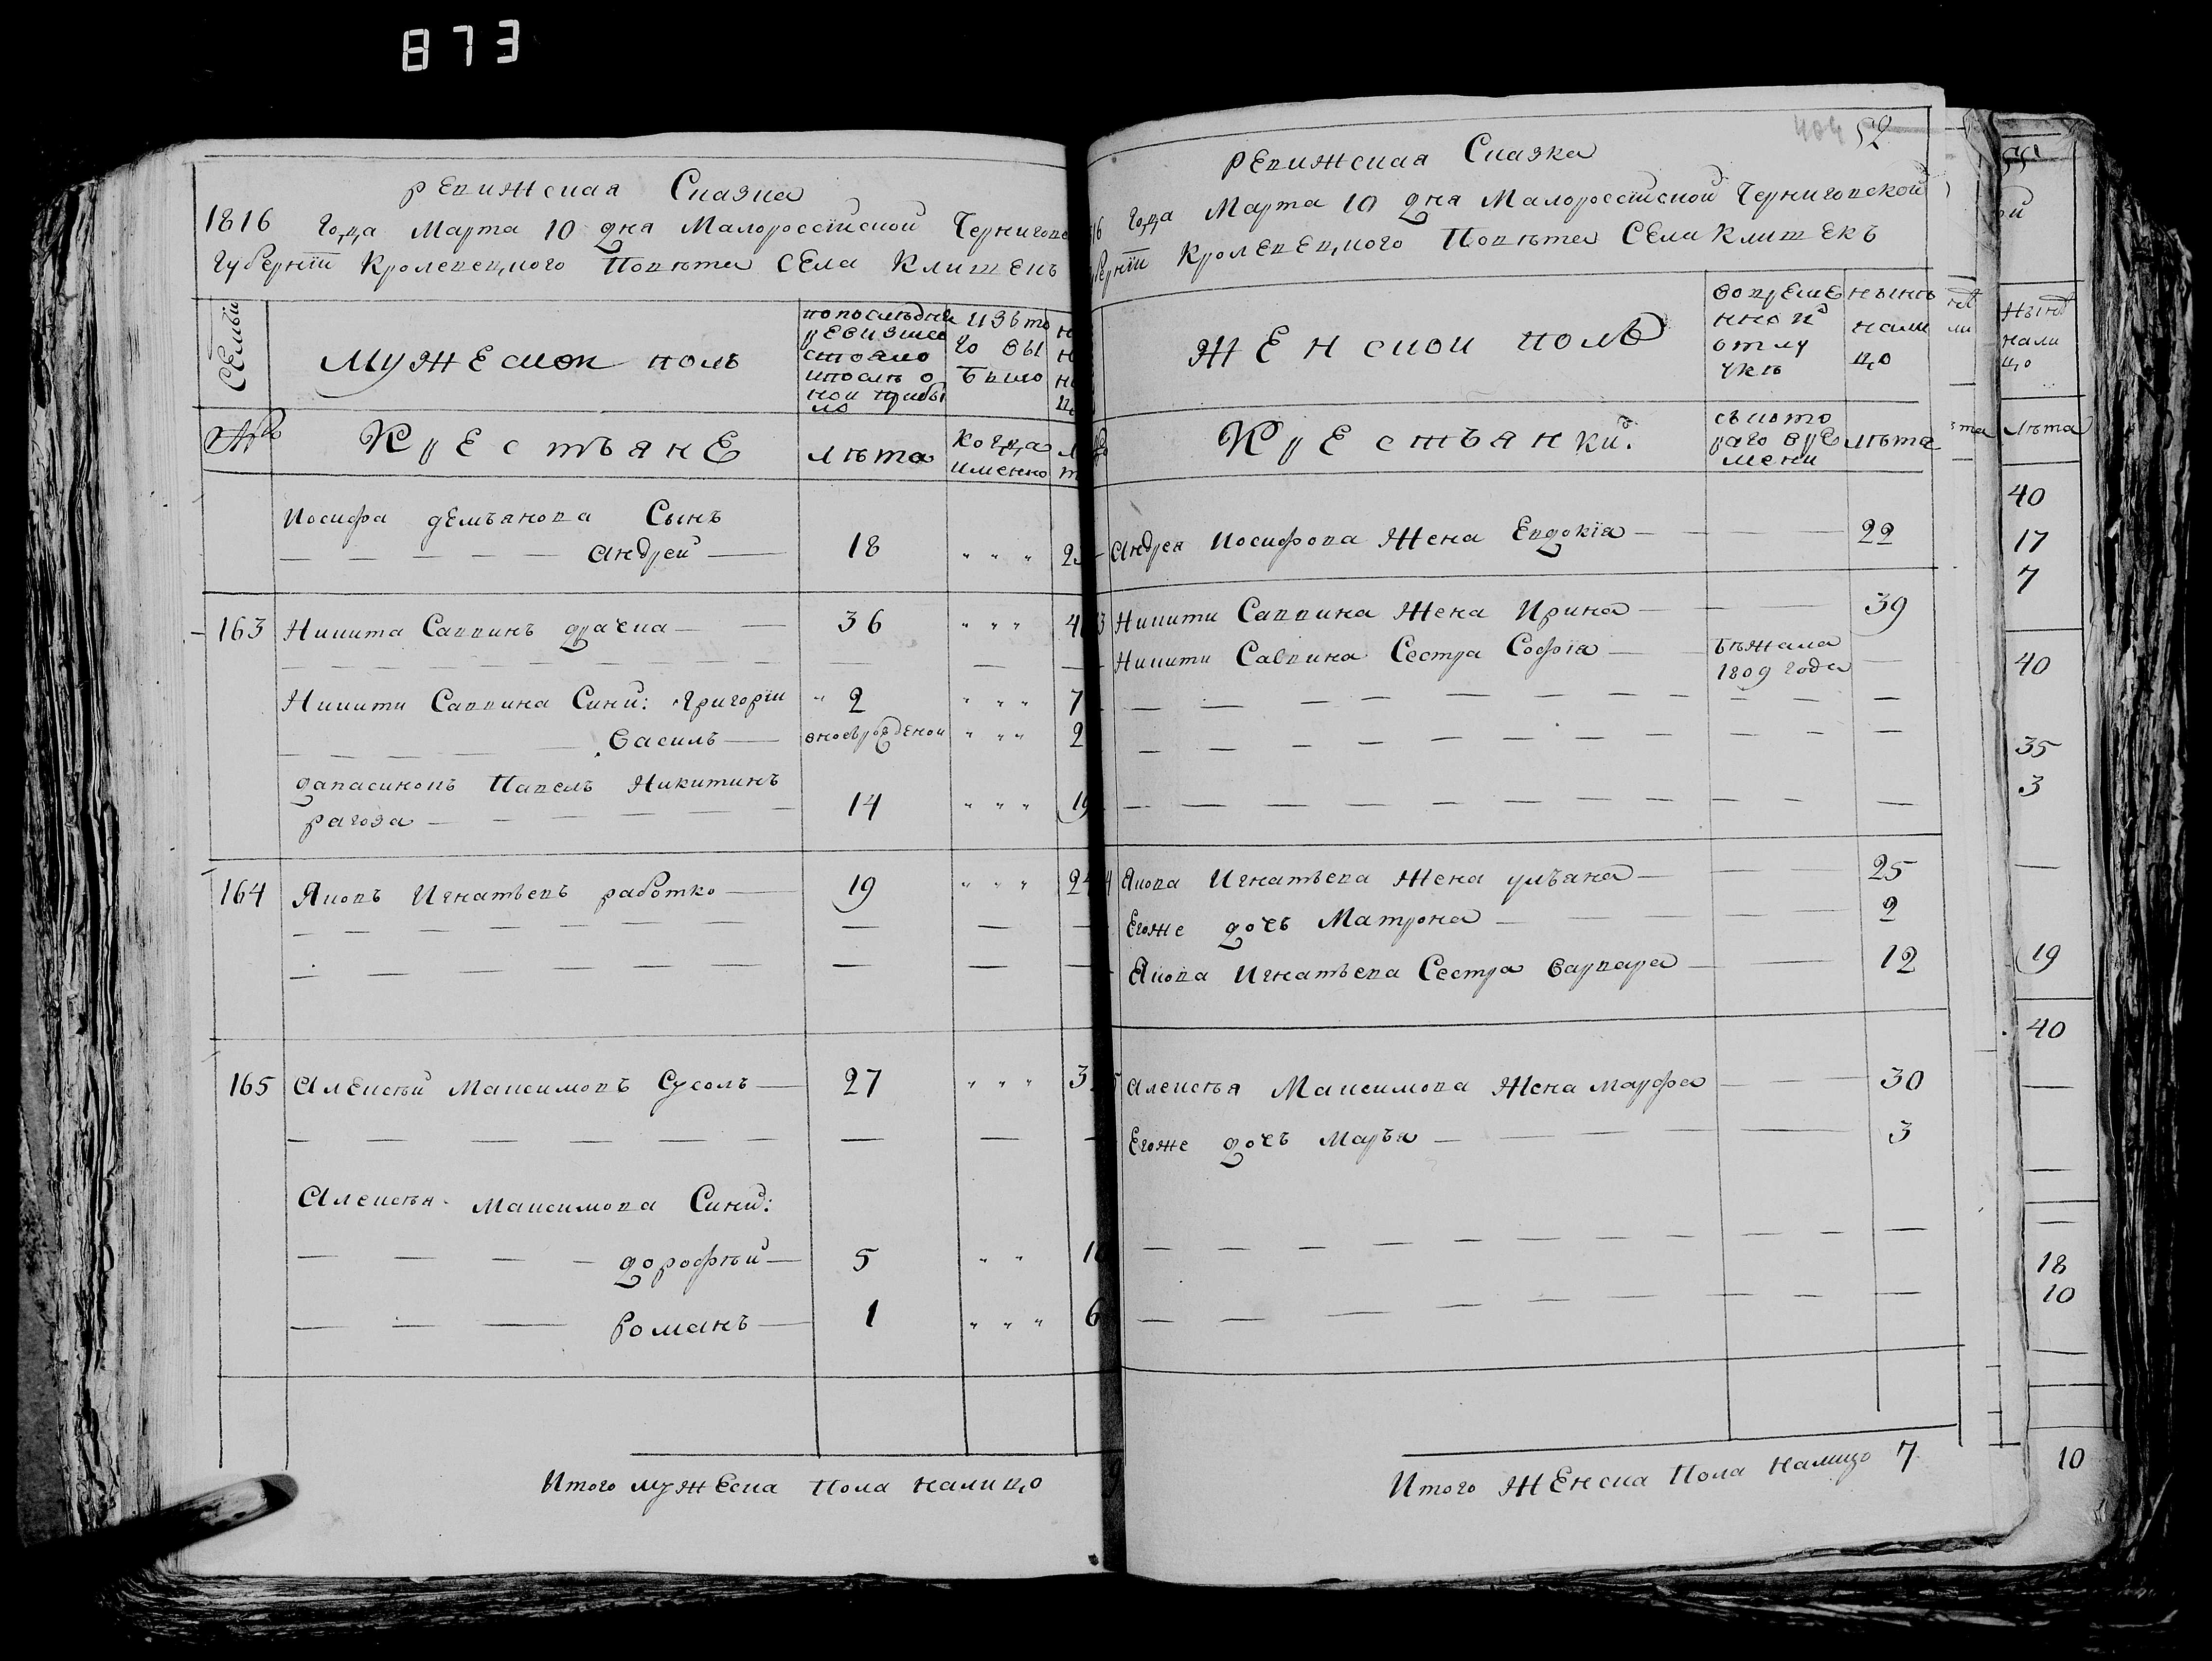 873
ревижская Сказка
1816 Года Марта 10 дня Малороссійской Чернигов
Губерніи Кролевецкого Повѣта Села Клишекъ
Семьи
Мужескои полъ
по последней
ревизіи
состояло
и после о
ной прибы
ло
изъ то
го вы
было
№
Крестьяне
лѣта
когда
именно
Иосифа демьянова Сынъ
андрей 18
163 Никита Саввинъ драчка 36
Никити Саввина Сини: Григорїи 2 7
василъ вновърожденои 2
Павелъ Никитинъ
рагоза 14
164 Яковъ Игнатьевъ работко 19
165 Алексѣй Максимовъ Сусолъ 27
Алексѣя Максимова Сини:
дорофѣй 5
романъ 1 6
Итого мужеска пола налицо
404 52
ревижская Сказка
Года Марта 10 дня Малороссійской Черниговской
Губерніи Кролевецкого Повѣта Села Клишекъ
женскои полъ
во време
нной
отлу
чкѣ
нынѣ
нали
цо
Крестьянки.
съ кото
раго вре
мени
лѣта
андрея Иосифова Жена Евдокїа 22
Никити Саввина Жена Ирина 39
Никити Саввина Сестра Софїа бѣжала
1809 года
Якова Игнатьева Жена улъяна 25
Егоже дочъ Матрона 2
Якова Игнатьева Сестра варвара 12
Алексѣя Максимова Жена марфа 30
Егоже дочъ Маръя 3
Итого Женска Пола налицо 7
нынѣ
нали
цо
лѣта
40
17
7
40
35
3
19
40
18
10
10